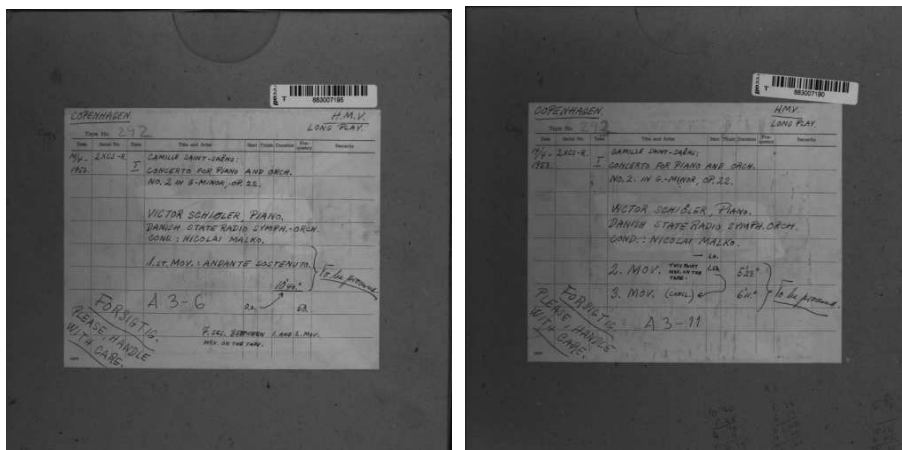 T
883007195
COPENHAGEN
H.M.V.
LONG PLAY.
Tape No. 292
Date Serial No. Take Title and Artist Start Finish Duration Fre-quency Remarks
1953.
I
CAMILLE SAINT-SAËNS:
CONCERTO FOR PIANO AND ORCH.
NO. 2 IN G-MINOR, OP. 22.
VICTOR SCHIØLER, PIANO.
DANISH STATE RADIO SYMPH.-ORCH.
COND.: NICOLAI MALKO.
1.ST. MOV.: ANDANTE SOSTENUTO.
To be
A 3-6
FORSIGTIG.
PLEASE, HANDLE
WITH CARE.
7. SEC. BETWEEN 1. AND 2. MOV.
ON THE TAPE.
T
883007190
COPENHAGEN
H.M.V.
LONG PLAY.
Tape No. 292
Date Serial No. Take Title and Artist Start Finish Duration Fre-quency Remarks
1953.
I
CAMILLE SAINT-SAËNS:
CONCERTO FOR PIANO AND ORCH.
NO. 2. IN G-MINOR, OP. 22.
VICTOR SCHIØLER, PIANO.
DANISH STATE RADIO SYMPH.-ORCH.
COND.: NICOLAI MALKO.
2. MOV.
ON THE
TAPE
3. MOV.
To be
A 3-11
FORSIGTIG.
PLEASE, HANDLE
WITH CARE.